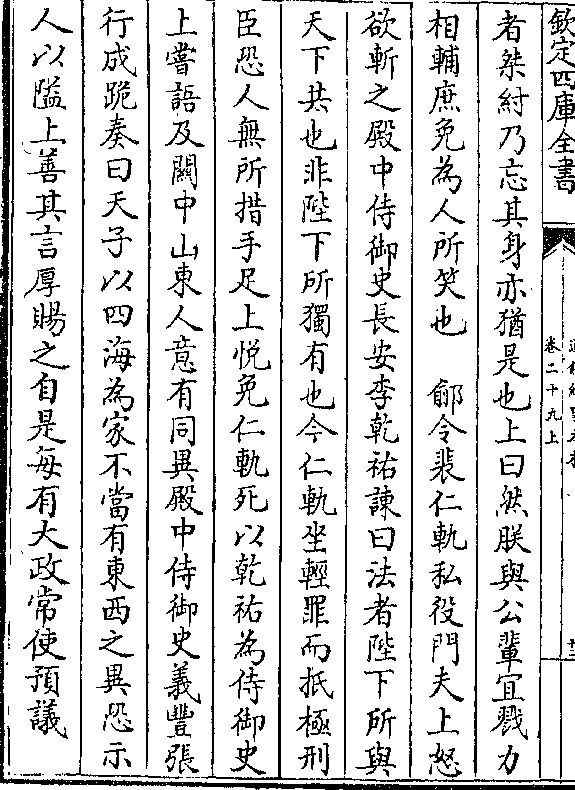 欽定四庫全書
卷二十九上
者桀紂乃忘其身亦猶是也上曰然朕與公輩宜戮力
相輔庶免為人所笑也　鄃令裴仁軌私役門夫上怒
欲斬之殿中侍御史長安李乾祐諫曰法者陛下所與
天下共也非陛下所獨有也今仁軌坐輕罪而抵極刑
臣恐人無所措手足上悅免仁軌死以乾祐為侍御史
上嘗語及關中山東人意有同異殿中侍御史義豐張
行成跪奏曰天子以四海為家不當有東西之異恐示
人以隘上善其言厚賜之自是每有大政常使預議